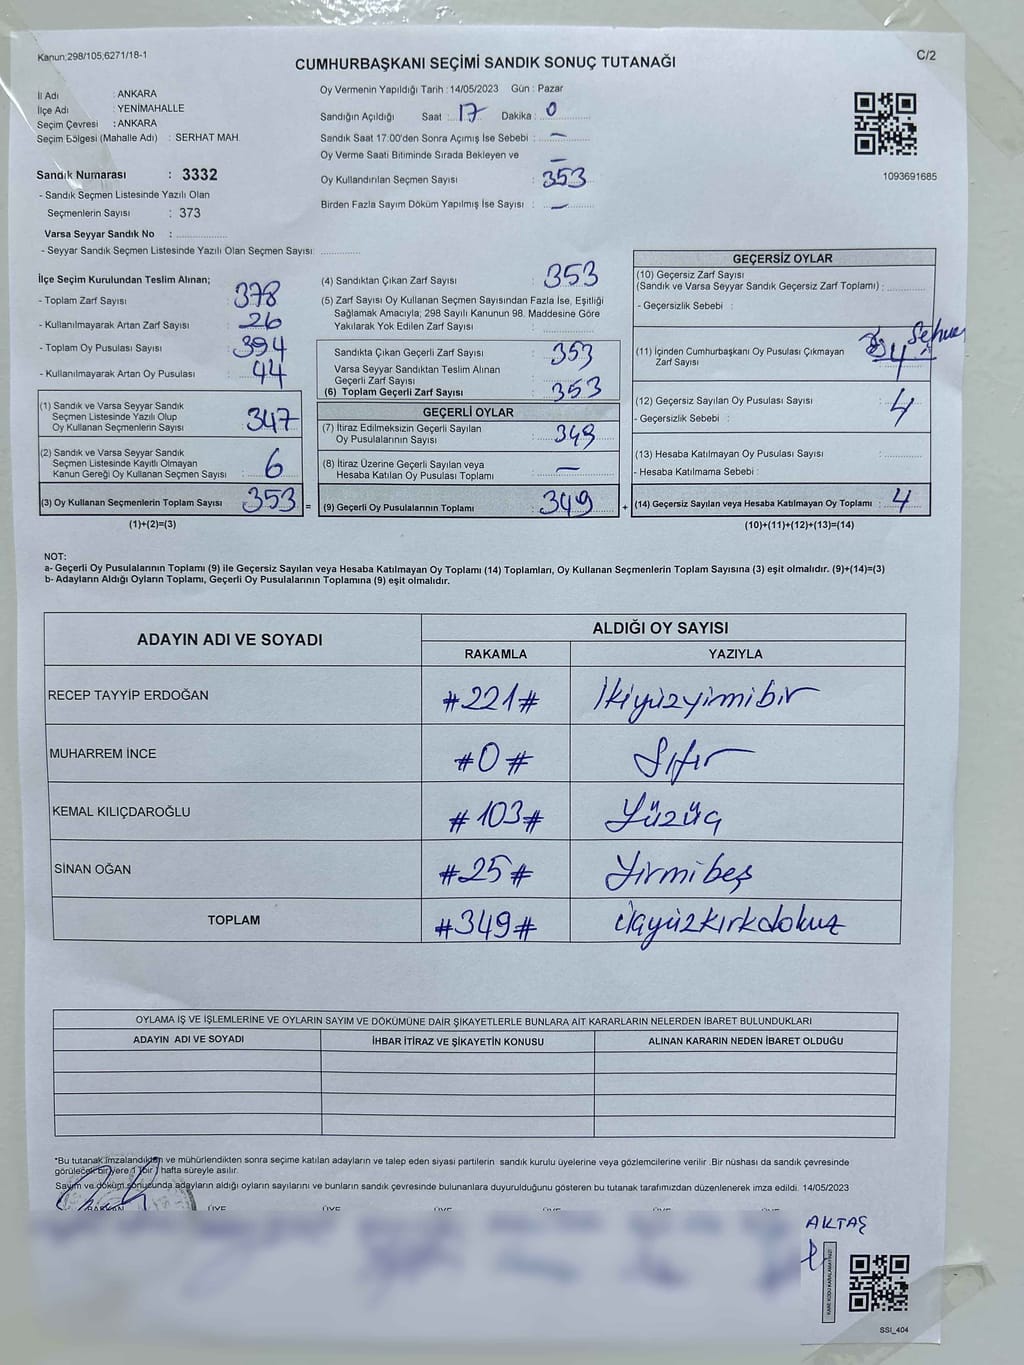 Kanun;298/105,6271/18-1
C/2
CUMHURBAŞKANI SEÇİMİ SANDIK SONUÇ TUTANAĞI
İl Adı : ANKARA
İlçe Adı : YENİMAHALLE
Seçim Çevresi : ANKARA
Seçim Bölgesi (Mahalle Adı) : SERHAT MAH.
Oy Vermenin Yapıldığı Tarih : 14/05/2023 Gün : Pazar
Sandığın Açıldığı Saat : 17 Dakika : 0
Sandık Saat 17:00'den Sonra Açımış İse Sebebi : —
Oy Verme Saati Bitiminde Sırada Bekleyen ve —
Oy Kullandırılan Seçmen Sayısı : 353
Birden Fazla Sayım Döküm Yapılmış İse Sayısı : —
1093691685
Sandık Numarası : 3332
- Sandık Seçmen Listesinde Yazılı Olan
Seçmenlerin Sayısı : 373
Varsa Seyyar Sandık No :
- Seyyar Sandık Seçmen Listesinde Yazılı Olan Seçmen Sayısı:
İlçe Seçim Kurulundan Teslim Alınan;
- Toplam Zarf Sayısı : 378
- Kullanılmayarak Artan Zarf Sayısı : 26
- Toplam Oy Pusulası Sayısı : 394
- Kullanılmayarak Artan Oy Pusulası : 44
(1) Sandık ve Varsa Seyyar Sandık
Seçmen Listesinde Yazılı Olup
Oy Kullanan Seçmenlerin Sayısı : 347
(2) Sandık ve Varsa Seyyar Sandık
Seçmen Listesinde Kayıtlı Olmayan
Kanun Gereği Oy Kullanan Seçmen Sayısı : 6
(3) Oy Kullanan Seçmenlerin Toplam Sayısı : 353
(1)+(2)=(3)
(4) Sandıktan Çıkan Zarf Sayısı : 353
(5) Zarf Sayısı Oy Kullanan Seçmen Sayısından Fazla İse, Eşitliği
Sağlamak Amacıyla; 298 Sayılı Kanunun 98. Maddesine Göre
Yakılarak Yok Edilen Zarf Sayısı :
Sandıkta Çıkan Geçerli Zarf Sayısı : 353
Varsa Seyyar Sandıktan Teslim Alınan
Geçerli Zarf Sayısı :
(6) Toplam Geçerli Zarf Sayısı : 353
GEÇERLİ OYLAR
(7) İtiraz Edilmeksizin Geçerli Sayılan
Oy Pusulalarının Sayısı : 349
(8) İtiraz Üzerine Geçerli Sayılan veya
Hesaba Katılan Oy Pusulası Toplamı : —
= (9) Geçerli Oy Pusulalarının Toplamı : 349 +
GEÇERSİZ OYLAR
(10) Geçersiz Zarf Sayısı
(Sandık ve Varsa Seyyar Sandık Geçersiz Zarf Toplamı) :
- Geçersizlik Sebebi :
(11) İçinden Cumhurbaşkanı Oy Pusulası Çıkmayan
Zarf Sayısı : 4
(12) Geçersiz Sayılan Oy Pusulası Sayısı : 4
- Geçersizlik Sebebi :
(13) Hesaba Katılmayan Oy Pusulası Sayısı :
- Hesaba Katılmama Sebebi :
(14) Geçersiz Sayılan veya Hesaba Katılmayan Oy Toplamı : 4
(10)+(11)+(12)+(13)=(14)
NOT:
a- Geçerli Oy Pusulalarının Toplamı (9) ile Geçersiz Sayılan veya Hesaba Katılmayan Oy Toplamı (14) Toplamları, Oy Kullanan Seçmenlerin Toplam Sayısına (3) eşit olmalıdır. (9)+(14)=(3)
b- Adayların Aldığı Oyların Toplamı, Geçerli Oy Pusulalarının Toplamına (9) eşit olmalıdır.
ADAYIN ADI VE SOYADI ALDIĞI OY SAYISI
RAKAMLA YAZIYLA
RECEP TAYYİP ERDOĞAN #221# İkiyüzyirmibir
MUHARREM İNCE #0# Sıfır
KEMAL KILIÇDAROĞLU #103# Yüzüç
SİNAN OĞAN #25# Yirmibeş
TOPLAM #349# üçyüzkırkdokuz
OYLAMA İŞ VE İŞLEMLERİNE VE OYLARIN SAYIM VE DÖKÜMÜNE DAİR ŞİKAYETLERLE BUNLARA AİT KARARLARIN NELERDEN İBARET BULUNDUKLARI
ADAYIN ADI VE SOYADI İHBAR İTİRAZ VE ŞİKAYETİN KONUSU ALINAN KARARIN NEDEN İBARET OLDUĞU
*Bu tutanak imzalandıktan ve mühürlendikten sonra seçime katılan adayların ve talep eden siyasi partilerin sandık kurulu üyelerine veya gözlemcilerine verilir .Bir nüshası da sandık çevresinde
görülecek bir yere 1 (bir) hafta süreyle asılır.
Sayım ve döküm sonucunda adayların aldığı oyların sayılarını ve bunların sandık çevresinde bulunanlara duyurulduğunu gösteren bu tutanak tarafımızdan düzenlenerek imza edildi. 14/05/2023
BAŞKAN ÜYE ÜYE ÜYE ÜYE ÜYE ÜYE
AKTAŞ
SSI_404